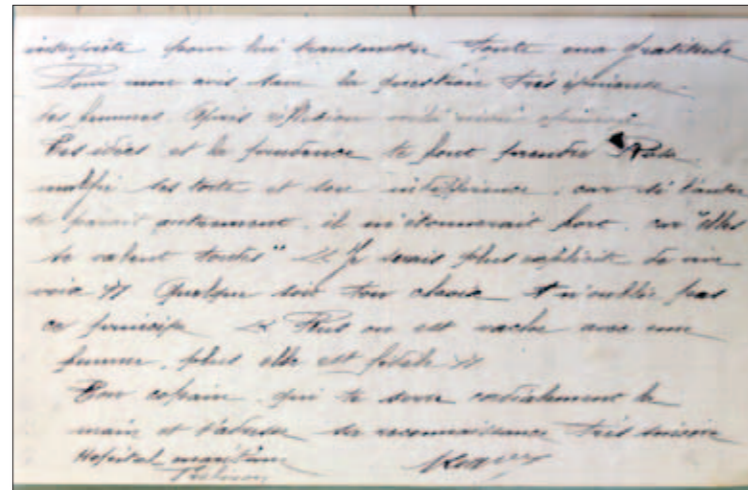 interprète pour lui transmettre toute ma gratitude
Pour mon avis sur la question très épineuse
des femmes. Après réflexion voilà
Tes idées et la prudence te font prendre
malgré ses torts et son indifférence, car si l'autre
te parait autrement, il m'étonnerait fort, car "elles
se valent toutes" « Je serais plus explicite de vive
voix » Quelque soit ton choix n'oublie pas
ce principe « Plus on est vache avec une
femme, plus elle est fidèle »
Ton copain qui te serre cordialement la
main et t'adresse sa reconnaissance très sincère
Hopital maritime